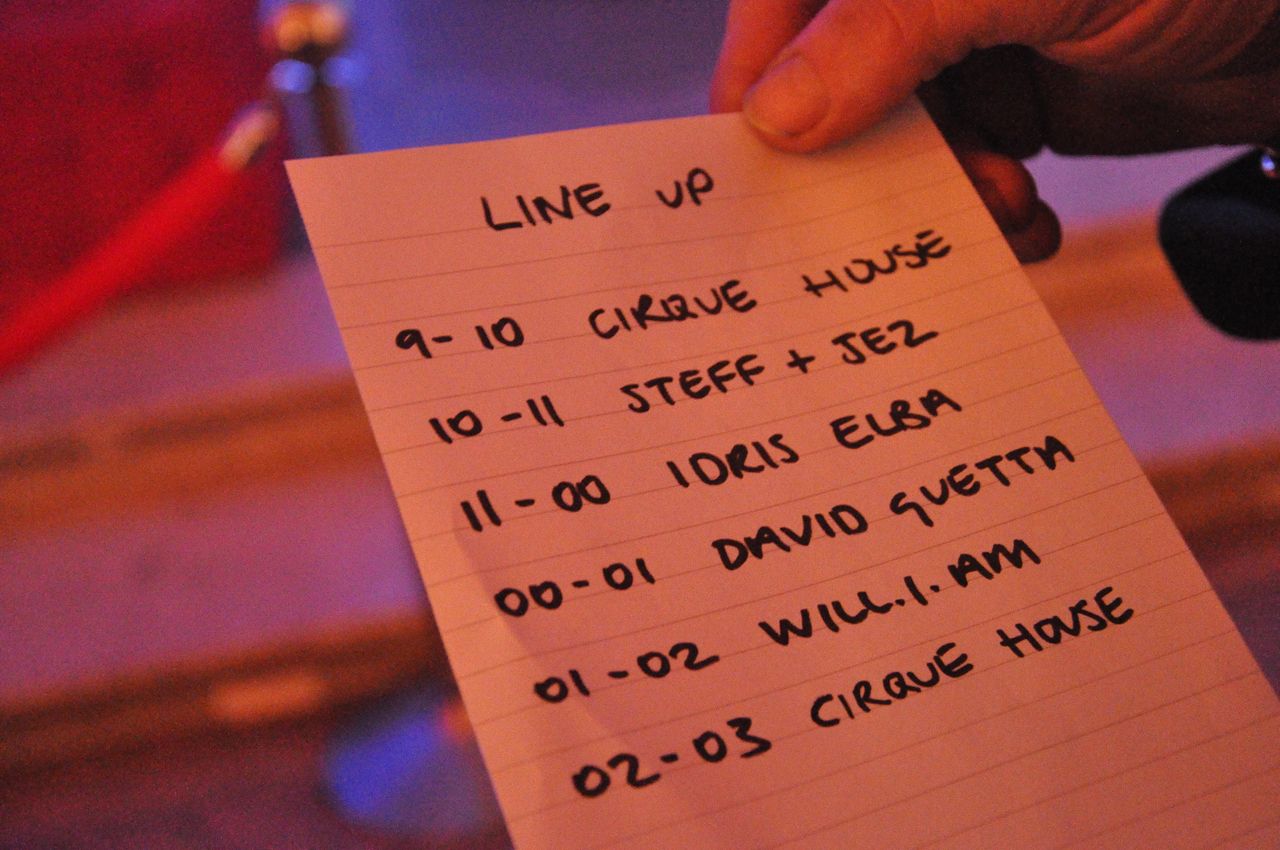 LINE UP
9-10 CIRQUE HOUSE
10-11 STEFF + JEZ
11-00 IDRIS ELBA
00-01 DAVID GUETTA
01-02 WILL.I.AM
02-03 CIRQUE HOUSE